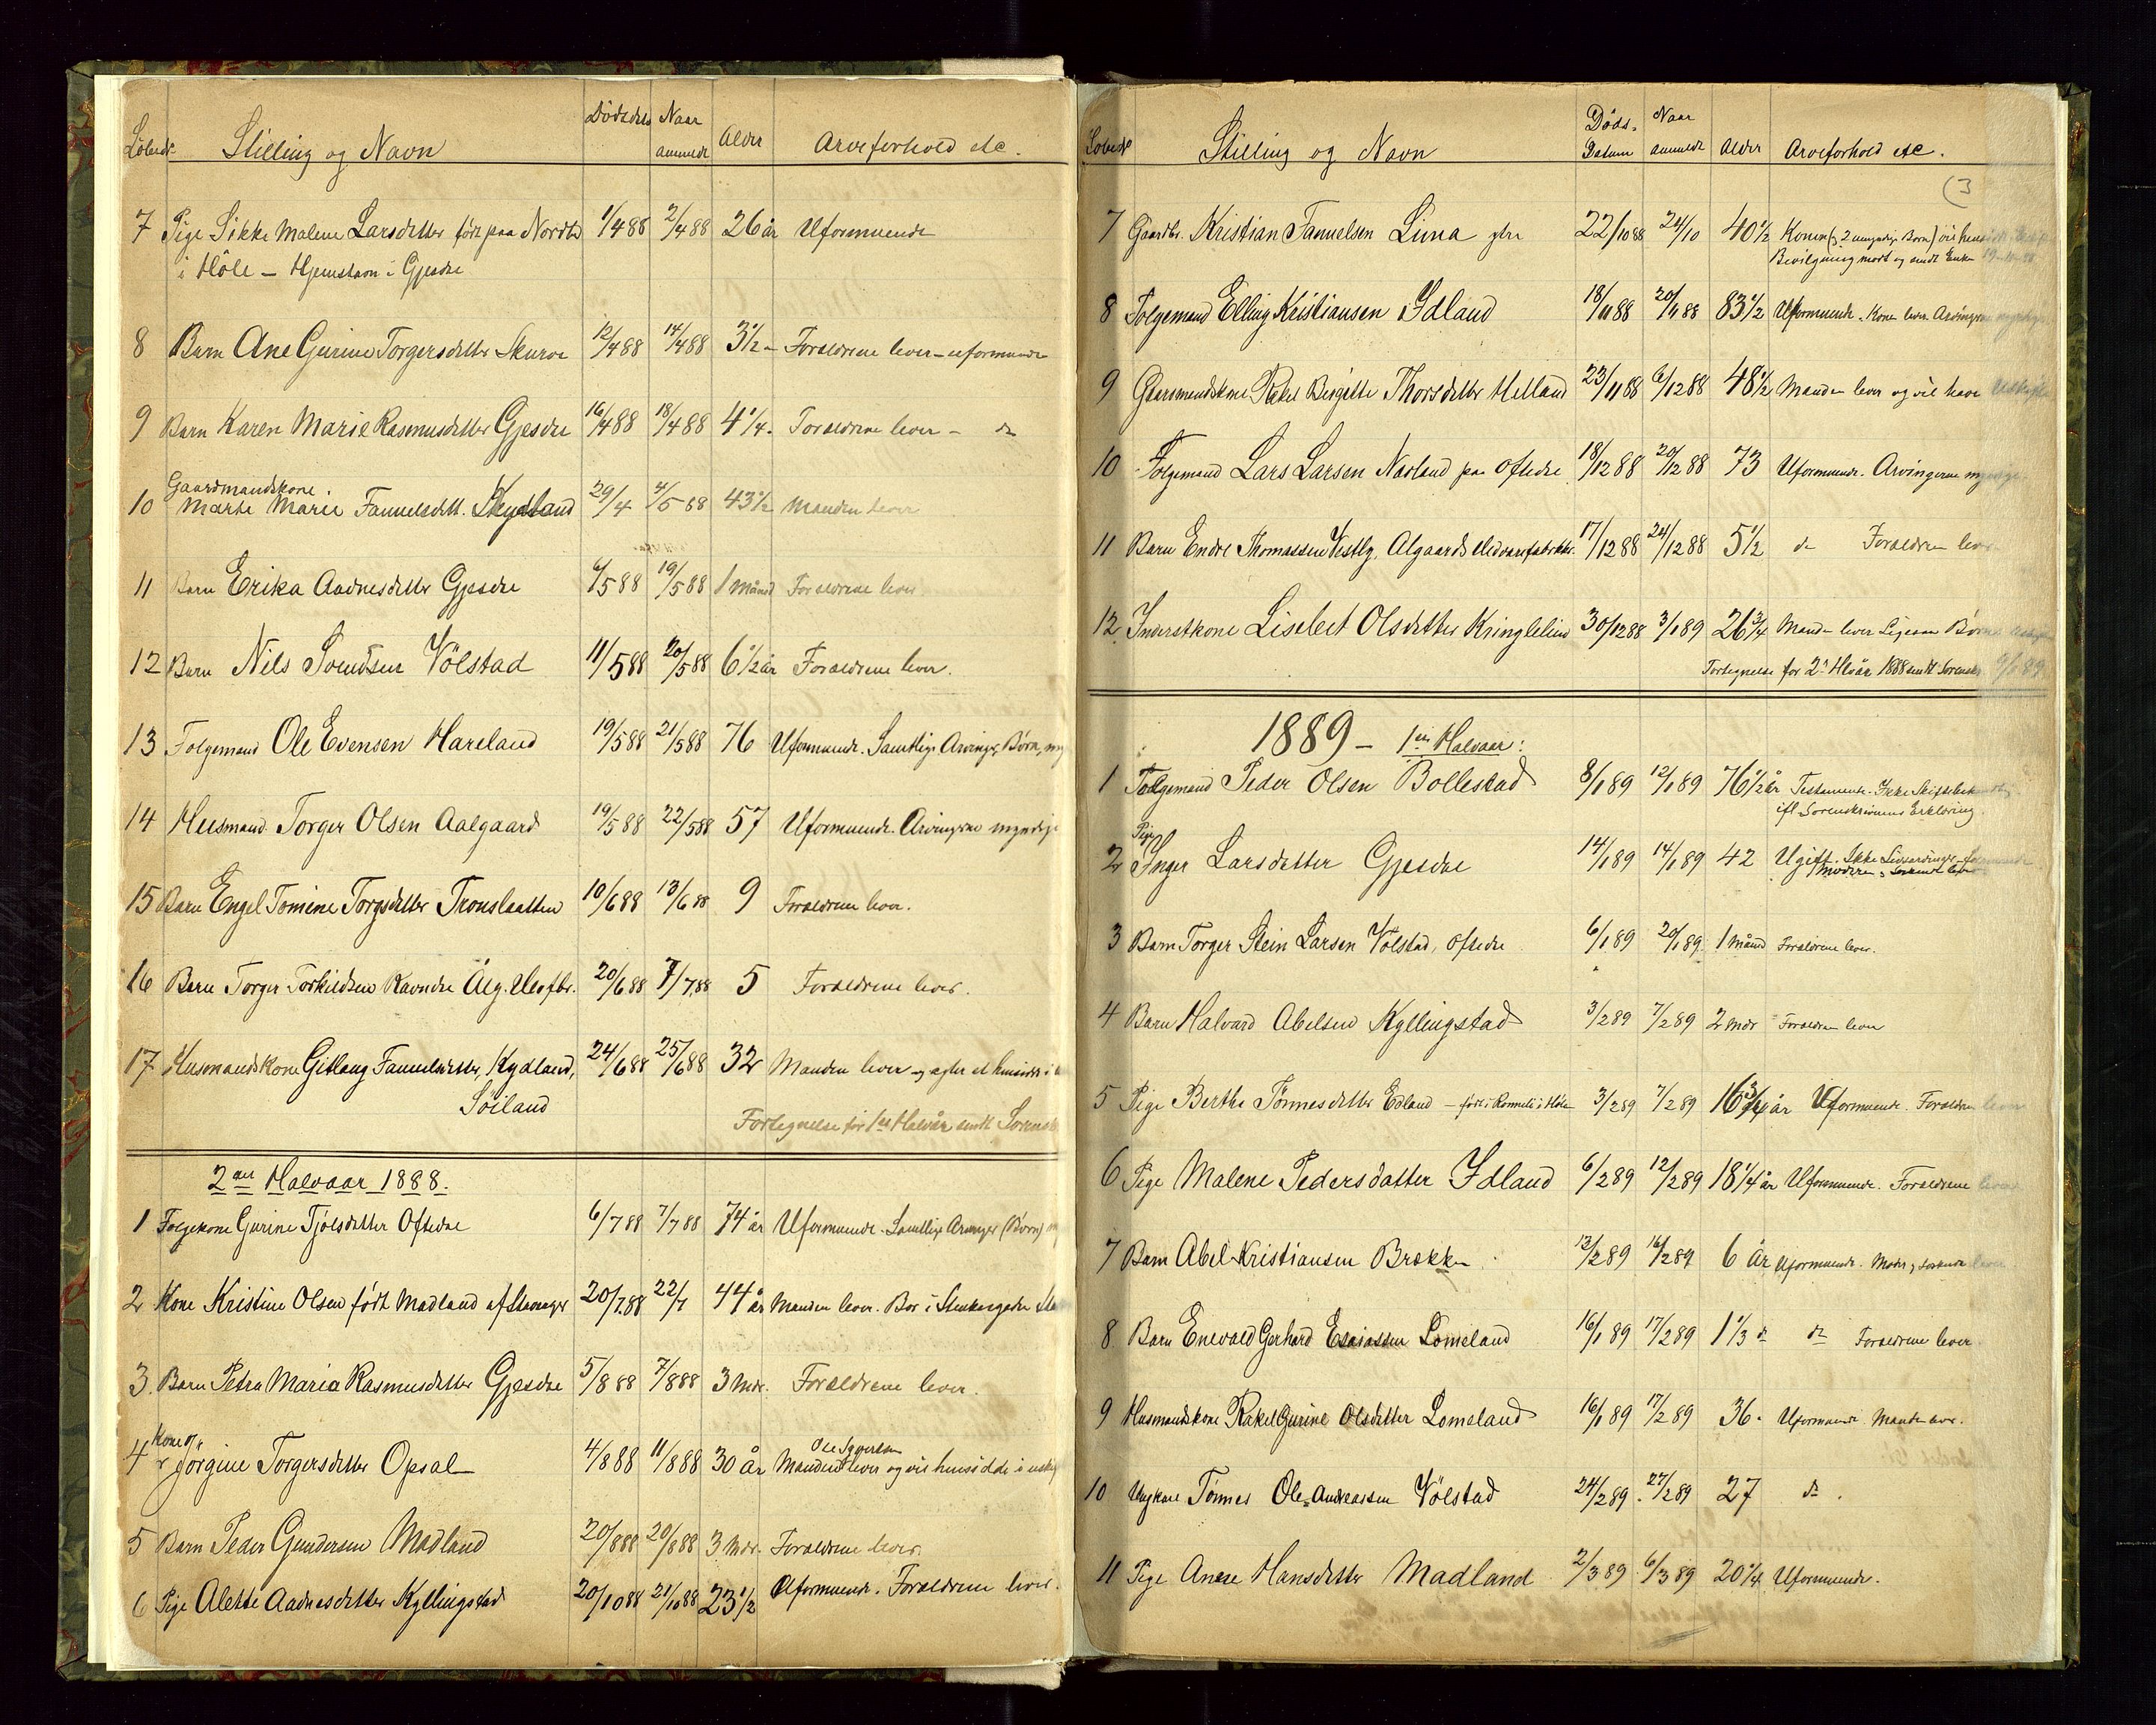 Löbende Stilling og Navn Dödsdato Naar anmeldt Alder Arveforhold etc.
7 Pige Sikke Malene Larsdatter født paa 1/4 88 2/4 88 26 år Uformuende
i Höle – Hjemstavn i Gjesdre
8 Barn Ane Gurine Torgersdatter Skurve 12/4 88 14/4 88 3 1/2 – Forældrene lever – uformuende
9 Barn Karen Marie Rasmusdatter Gjesdre 16/4 88 18/4 88 4 1/4 Forældrene lever – do
Gaardmandskone
10 Marte Marie Fanuelsdatt. Kydland 29/4 4/5 88 43 1/2 Manden lever
11 Barn Erika Aadnesdatter Gjesdre 6/5 88 19/5 88 1 Måned Forældrene lever
12 Barn Nils Svendsen Völstad 11/5 88 20/5 88 6 1/2 år Forældrene lever.
13 Folgemand Ole Evensen Hareland 19/5 88 21/5 88 76 Uformuende. Samtlige Arvinger, Børn, my
14 Husmand Torger Olsen Aalgaard 19/5 88 22/5 88 57 Uformuende. Arvingerne myndige
15 Barn Engel Tomine Torgersdatter Tronslaatten 10/6 88 13/6 88 9 Forældrene lever.
16 Barn Torger Torkildsen Ravndre Ålg. Uldfbr. 20/6 88 7/7 88 5 Forældrene lever.
17 Husmandskone Gitlaug Fanuelsdatter, Kydland, 24/6 88 25/6 88 32 Manden lever og agter at hensidde i
Söiland
Fortegnelse for 1ste Halvår sendt Sorensk
2det Halvaar 1888.
1 Folgekone Gurine Tjölsdatter Oftedre 6/7 88 7/7 88 74 år Uformuende. Samtlige Arvinger (Børn)
2 Kone Kristine Olsen født Madland af Stavanger 20/7 88 22/7 44 år Manden lever. Bor i Sta
3. Barn Petra Maria Rasmusdatter Gjesdre 5/8 88 7/8 88 3 Mdr. Forældrene lever.
Kone
4 Jörgine Torgersdatter Opsal 4/8 88 11/8 88 30 år Manden lever og vil hensidde i uskif
5 Barn Peder Gundersen Madland 20/8 88 20/8 88 3 Mdr. Forældrene lever.
6 Pige Alette Aadnesdatter Kyllingstad 20/10 88 21/10 88 23 1/2 Uformuende. Forældrene lever.
Löbende Stilling og Navn Döds-Datum Naar anmeldt Alder Arveforhold etc.
(3
7 Gaardbr. Kristian Fanuelsen Lima 22/10 88 24/10 40 1/2 Konen (og 2 umyndige Børn) vil hens
Bevilgning modt og sendt Enken
8 Folgemand Elling Kristiansen Ydland 18/11 88 20/11 88 83 1/2 Uformuende. Konen lever. Arvingerne
9 Gaarmandskone Rakel Birgitte Thorsdatter Helland 23/11 88 6/12 88 48 1/2 Manden lever og vil have
10 Folgemand Lars Larsen Navland paa Oftedre 18/12 88 20/12 88 73 Uformuende. Arvingerne myndige
11 Barn Endre Thomassen Vestly, Algaards Uldvarefabrikker. 17/12 88 24/12 88 5 1/2 do Forældrene lever
12 Inderstkone Lisebet Olsdatter Kringlelien 30/12 88 3/1 89 26 3/4 Manden lever Ligesaa Børn
Fortegnelse for 2det Hlvår 1888 sendt Sorensk
1889 – 1ste Halvaar:
1 Folgemand Peder Olsen Bollestad 8/1 89 12/1 89 76 1/2 år Testamente. Ikke Skiftebehandling
ifl. Sorenskriverens Erklæring.
Pige
2 Inger Larsdatter Gjesdre 14/1 89 14/1 89 42 Ugift. Ikke Livsarvinger.
Moderen og Søskende lever
3 Barn Torger Stein Larsen Völstad, Oftedre 6/1 89 20/1 89 1 måned Forældrene lever.
4 Barn Halvard Abelsen Kyllingstad 3/2 89 7/2 89 2 mdr Forældrene lever
5 Pige Berthe Tönnesdatter Edland – født i Rommeli i Höle 3/2 89 7/2 89 16 3/4 år Uformuende. Forældrene lever
6 Pige Malene Pedersdatter Ydland 6/2 89 12/2 89 18 1/4 år Uformuende. Forældrene lever
7 Barn Abel Kristiansen Brekke 12/2 89 16/2 89 6 År Uformuende. Moder og Søskende lever
8 Barn Enevald Gerhard Esaiassen Lomeland 16/1 89 17/2 89 1 1/3 do do Forældrene lever
9 Husmandskone Rakel Gurine Olsdatter Lomeland 16/1 89 17/2 89 36. Uformuende. Manden lever.
10 Ungkarl Tönnes Ole Andreassen Völstad 24/2 89. 27/2 89 27 do.
11 Pige Anne Hansdatter Madland 2/3 89 6/3 89 20 1/4 Uformuende.